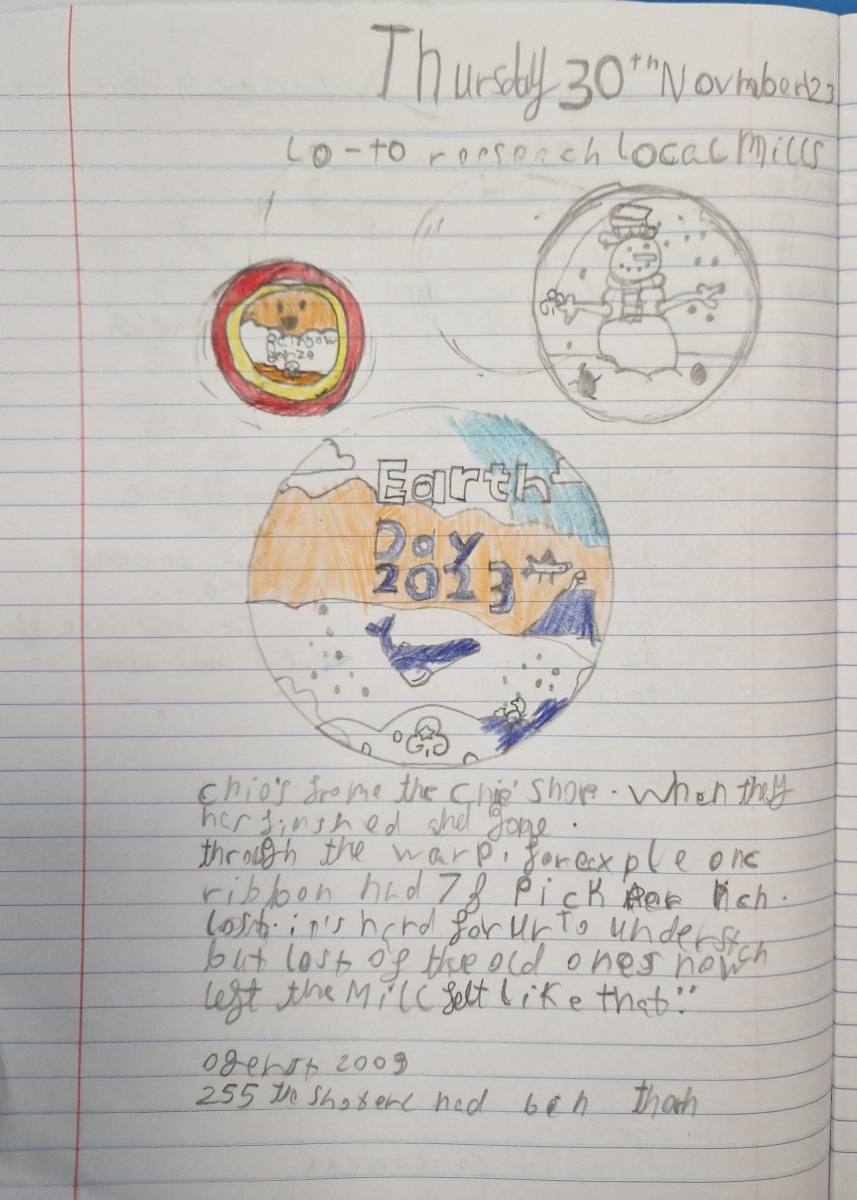 Thursday 30th Novmber 23
LO - to reeseach local Mills
Rainbow
Bonzo
Earth
Day
2023
chip's frome the chip' shop. when they
her finshed and gone.
through the warp. for exple one
ribbon had 78 Pick Per Iich.
Losts. it's hard for ur to underst
but lost of the old ones now
left the Mill felt like that"
2009
255 the had ben